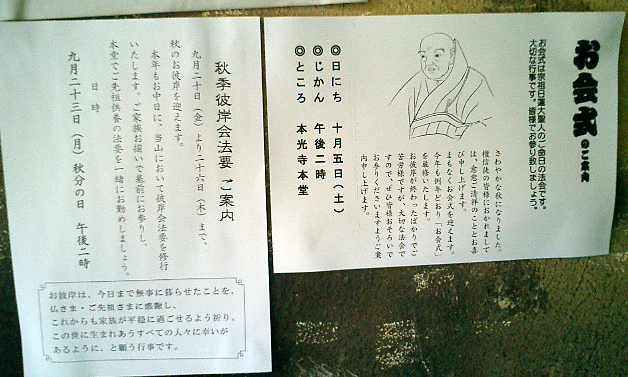 お会式のご案内
お会式は宗祖日蓮大聖人のご命日の法会です。
大切な行事です。皆様でお参り致しましょう。
さわやかな秋になりました。
檀信徒の皆様におかれまして
は、愈愈ご清祥のこととお喜
び申し上げます。
まもなくお会式を迎えます。
今年も例年どおり「お会式」
を厳修いたします。
お彼岸が終わったばかりでご
苦労様ですが、大切な法会で
すので、ぜひ皆様おそろいで
お参りくださいますようご案
内申し上げます。
◎日にち 十月五日(土)
◎じかん 午後二時
◎ところ 本光寺本堂
秋季彼岸会法要 ご案内
九月二十日(金)より二十六日(木)まで、
秋のお彼岸を迎えます。
本年もお中日に、当山において彼岸会法要を修行
いたします。ご家族お揃いで墓前にお参りし、
本堂でご先祖供養の法要を一緒にお勤めしましょう。
日時
九月二十三日(月)秋分の日 午後二時
お彼岸は、今日まで無事に暮らせたことを、
仏さま・ご先祖さまに感謝し、
これからも家族が平穏に過ごせるよう祈り、
この世に生まれあうすべての人々に幸いが
あるように、と願う行事です。